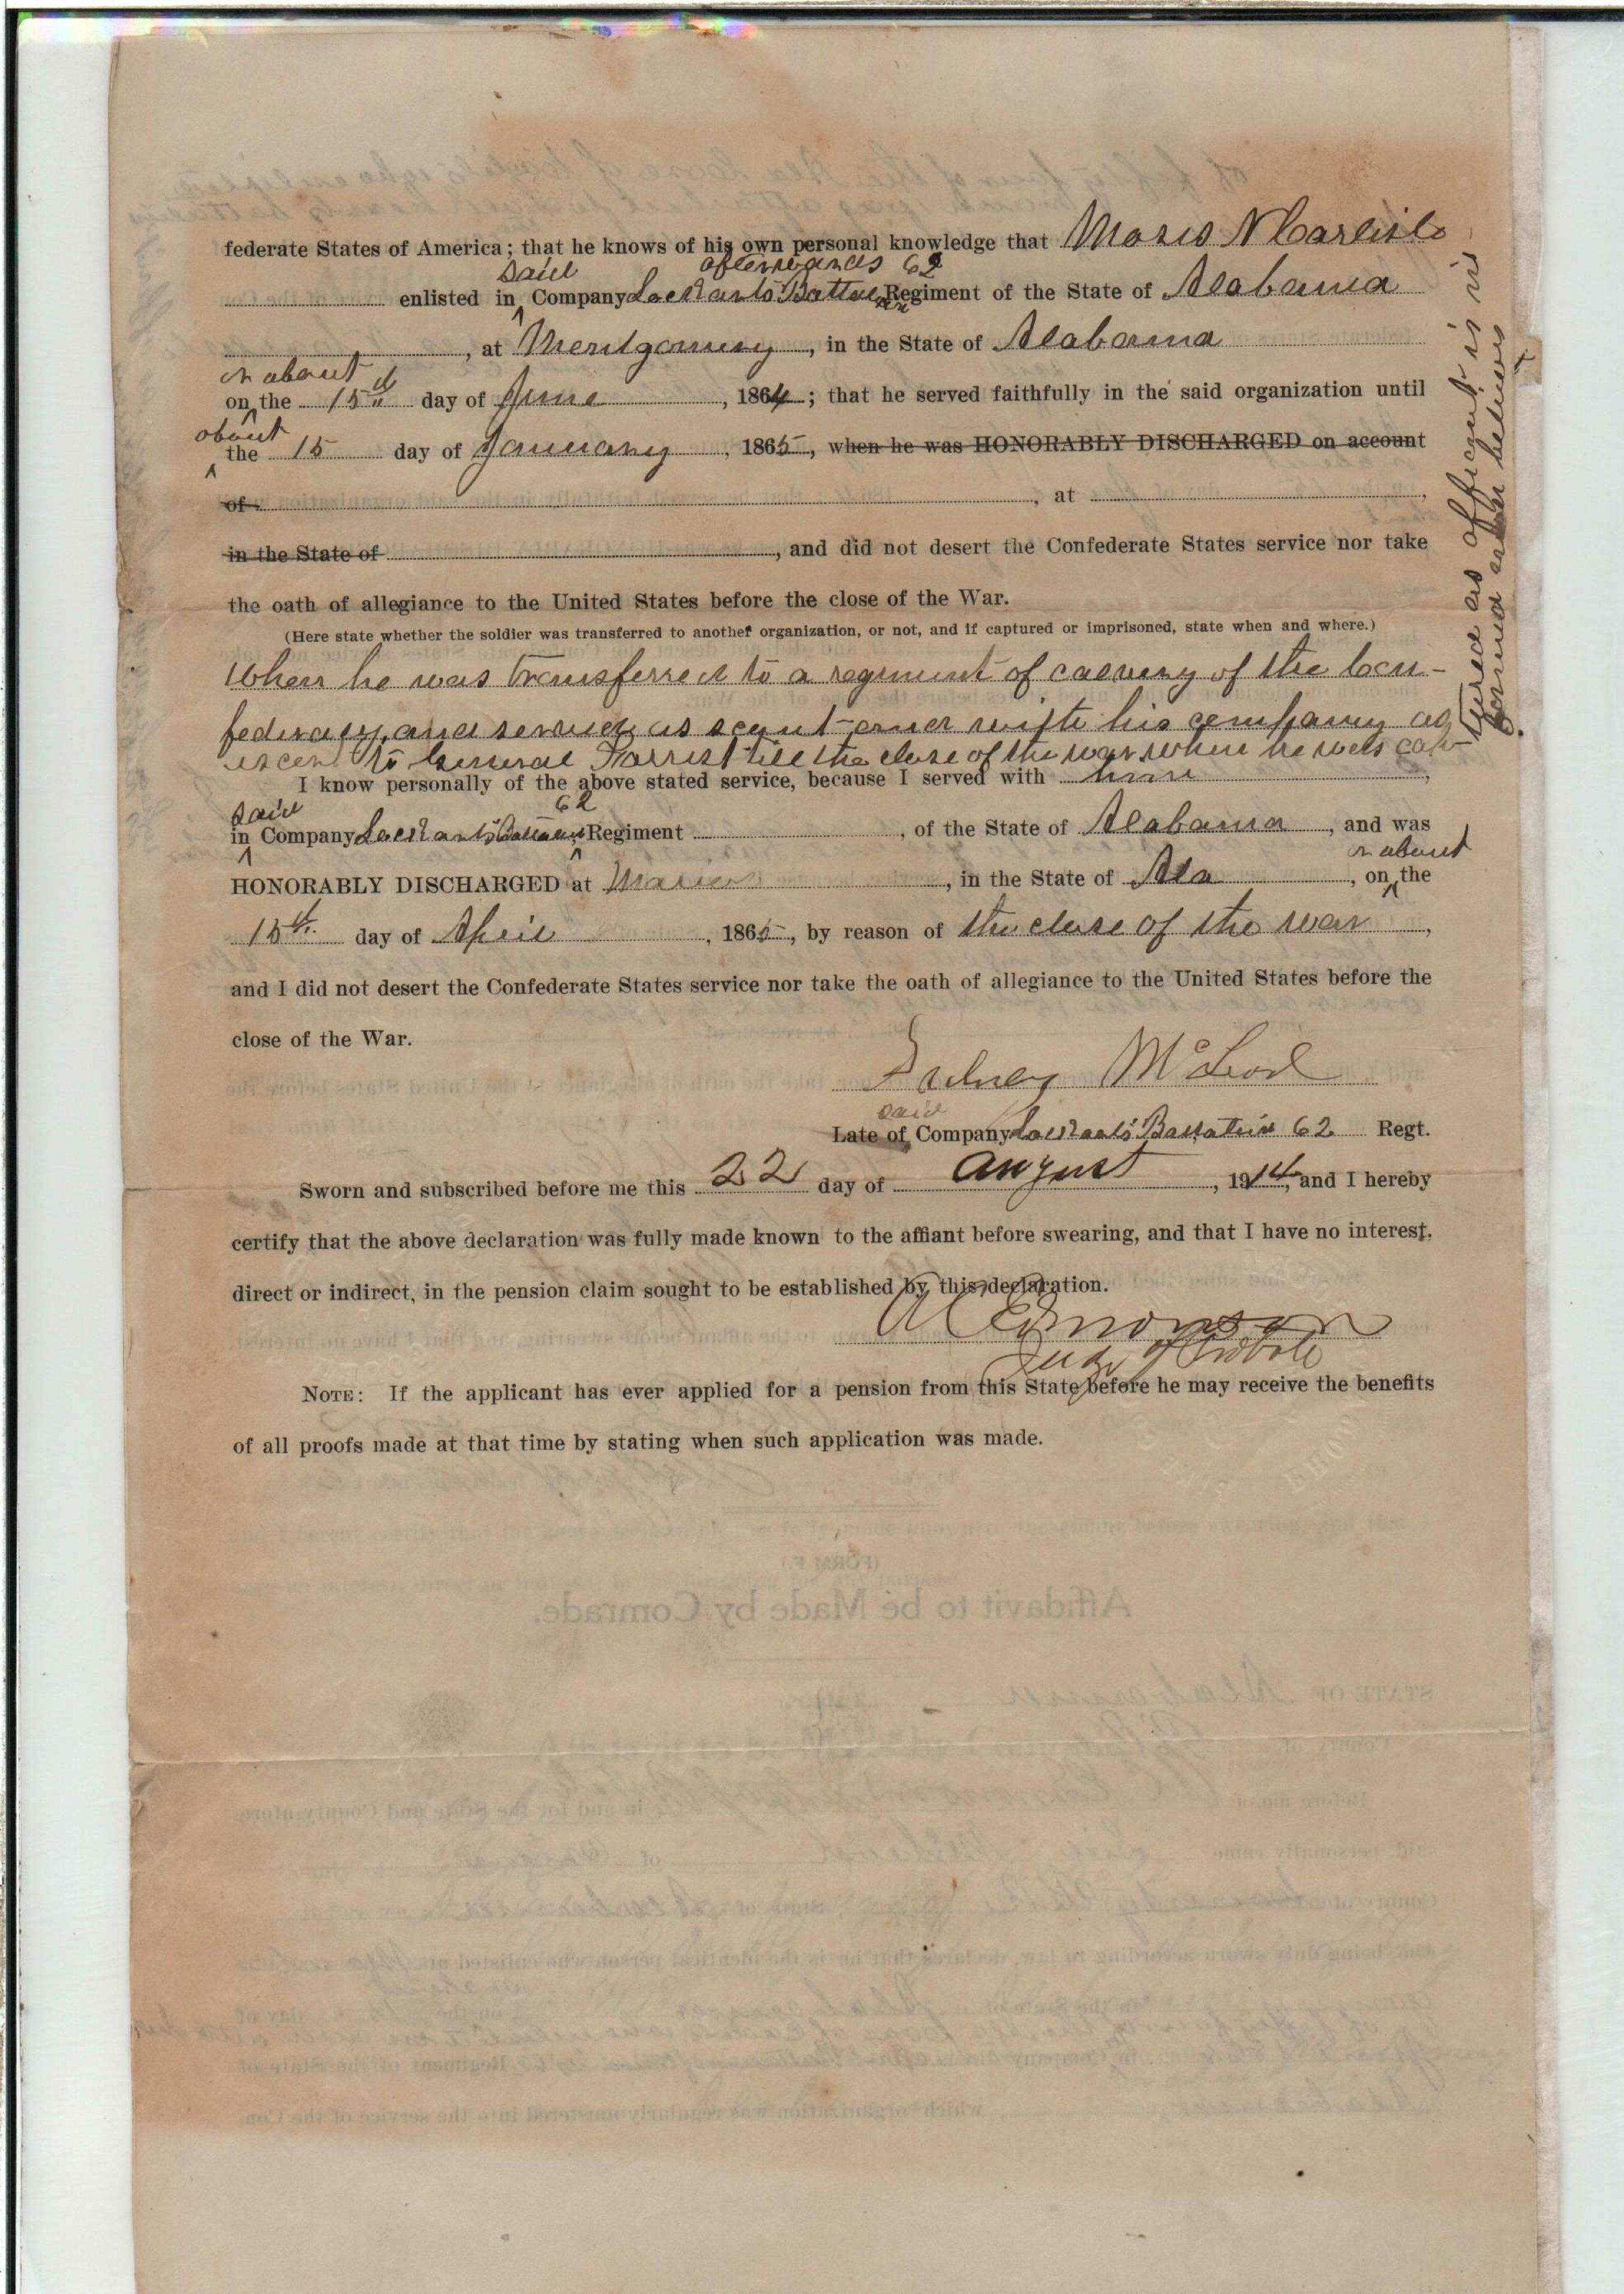 federate States of America; that he knows of his own personal knowledge that Moses N Carlisle
said afterwards 62
enlisted in Company Lockarts Battalion Regiment of the State of Alabama
, at Montgomery, in the State of Alabama
or about
on the 15th day of June, 1864; that he served faithfully in the said organization until
about
the 15 day of January, 1865, when he was HONORABLY DISCHARGED on account
of , at ,
in the State of , and did not desert the Confederate States service nor take
the oath of allegiance to the United States before the close of the War.
(Here state whether the soldier was transferred to another organization, or not, and if captured or imprisoned, state when and where.)
When he was transferred to a regiment of cavalry of the Con-
federacy, and served as scout and with his company as
escort to General Forrest till the close of the war when he was cap-
tured as affiant is in
formed and believes
I know personally of the above stated service, because I served with him,
said 62
in Company Lockarts Battalion Regiment , of the State of Alabama, and was
or about
HONORABLY DISCHARGED at Marion, in the State of Ala, on the
15th. day of April, 1865, by reason of the close of the war,
and I did not desert the Confederate States service nor take the oath of allegiance to the United States before the
close of the War.
Sidney McLeod
said
Late of Company Lockarts Battalion 62 Regt.
Sworn and subscribed before me this 22 day of August, 1914, and I hereby
certify that the above declaration was fully made known to the affiant before swearing, and that I have no interest,
direct or indirect, in the pension claim sought to be established by this declaration.
A C Edmonson
Judge of Probate
NOTE: If the applicant has ever applied for a pension from this State before he may receive the benefits
of all proofs made at that time by stating when such application was made.